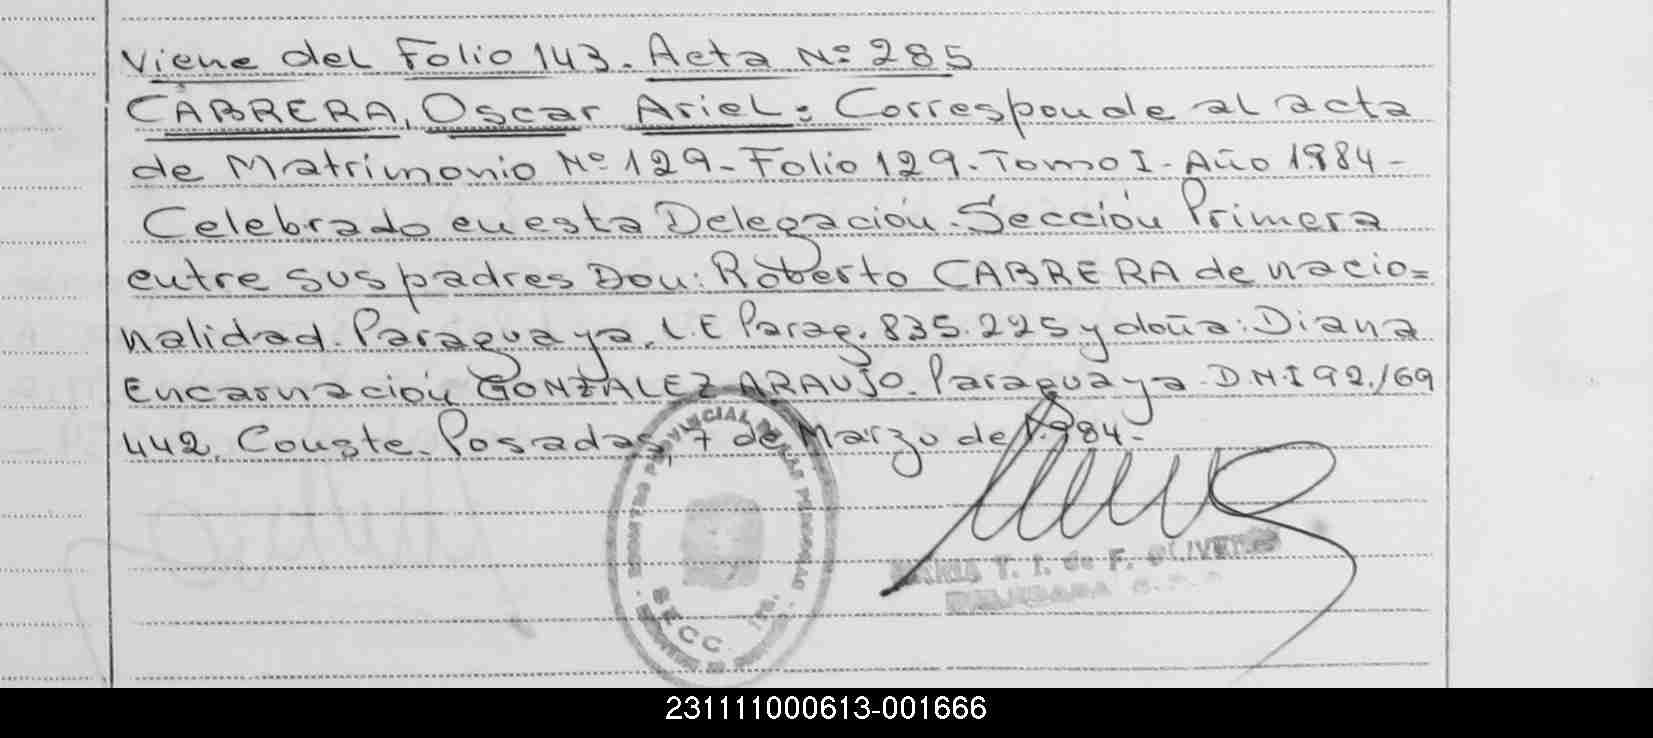 Viene del Folio 143. Acta Nº 285
CABRERA, Oscar Ariel: Corresponde al acta
de Matrimonio Nº 129- Folio 129. Tomo I- Año 1984-
Celebrado en esta Delegación. Sección Primera
entre sus padres Don: Roberto CABRERA de nacio=
nalidad. Paraguaya. L.E Parag. 835.225 y doña: Diana
Encarnación GONZALEZ ARAUJO. Paraguaya. D.N.I 92./69
442. Conste. Posadas, 7 de Marzo de 1.984-
REGISTRO PROVINCIAL DE LAS PERSONAS
SECC. 1ra.
MARIA T. I. de F. OLIVERES
DELEGADA
231111000613-001666